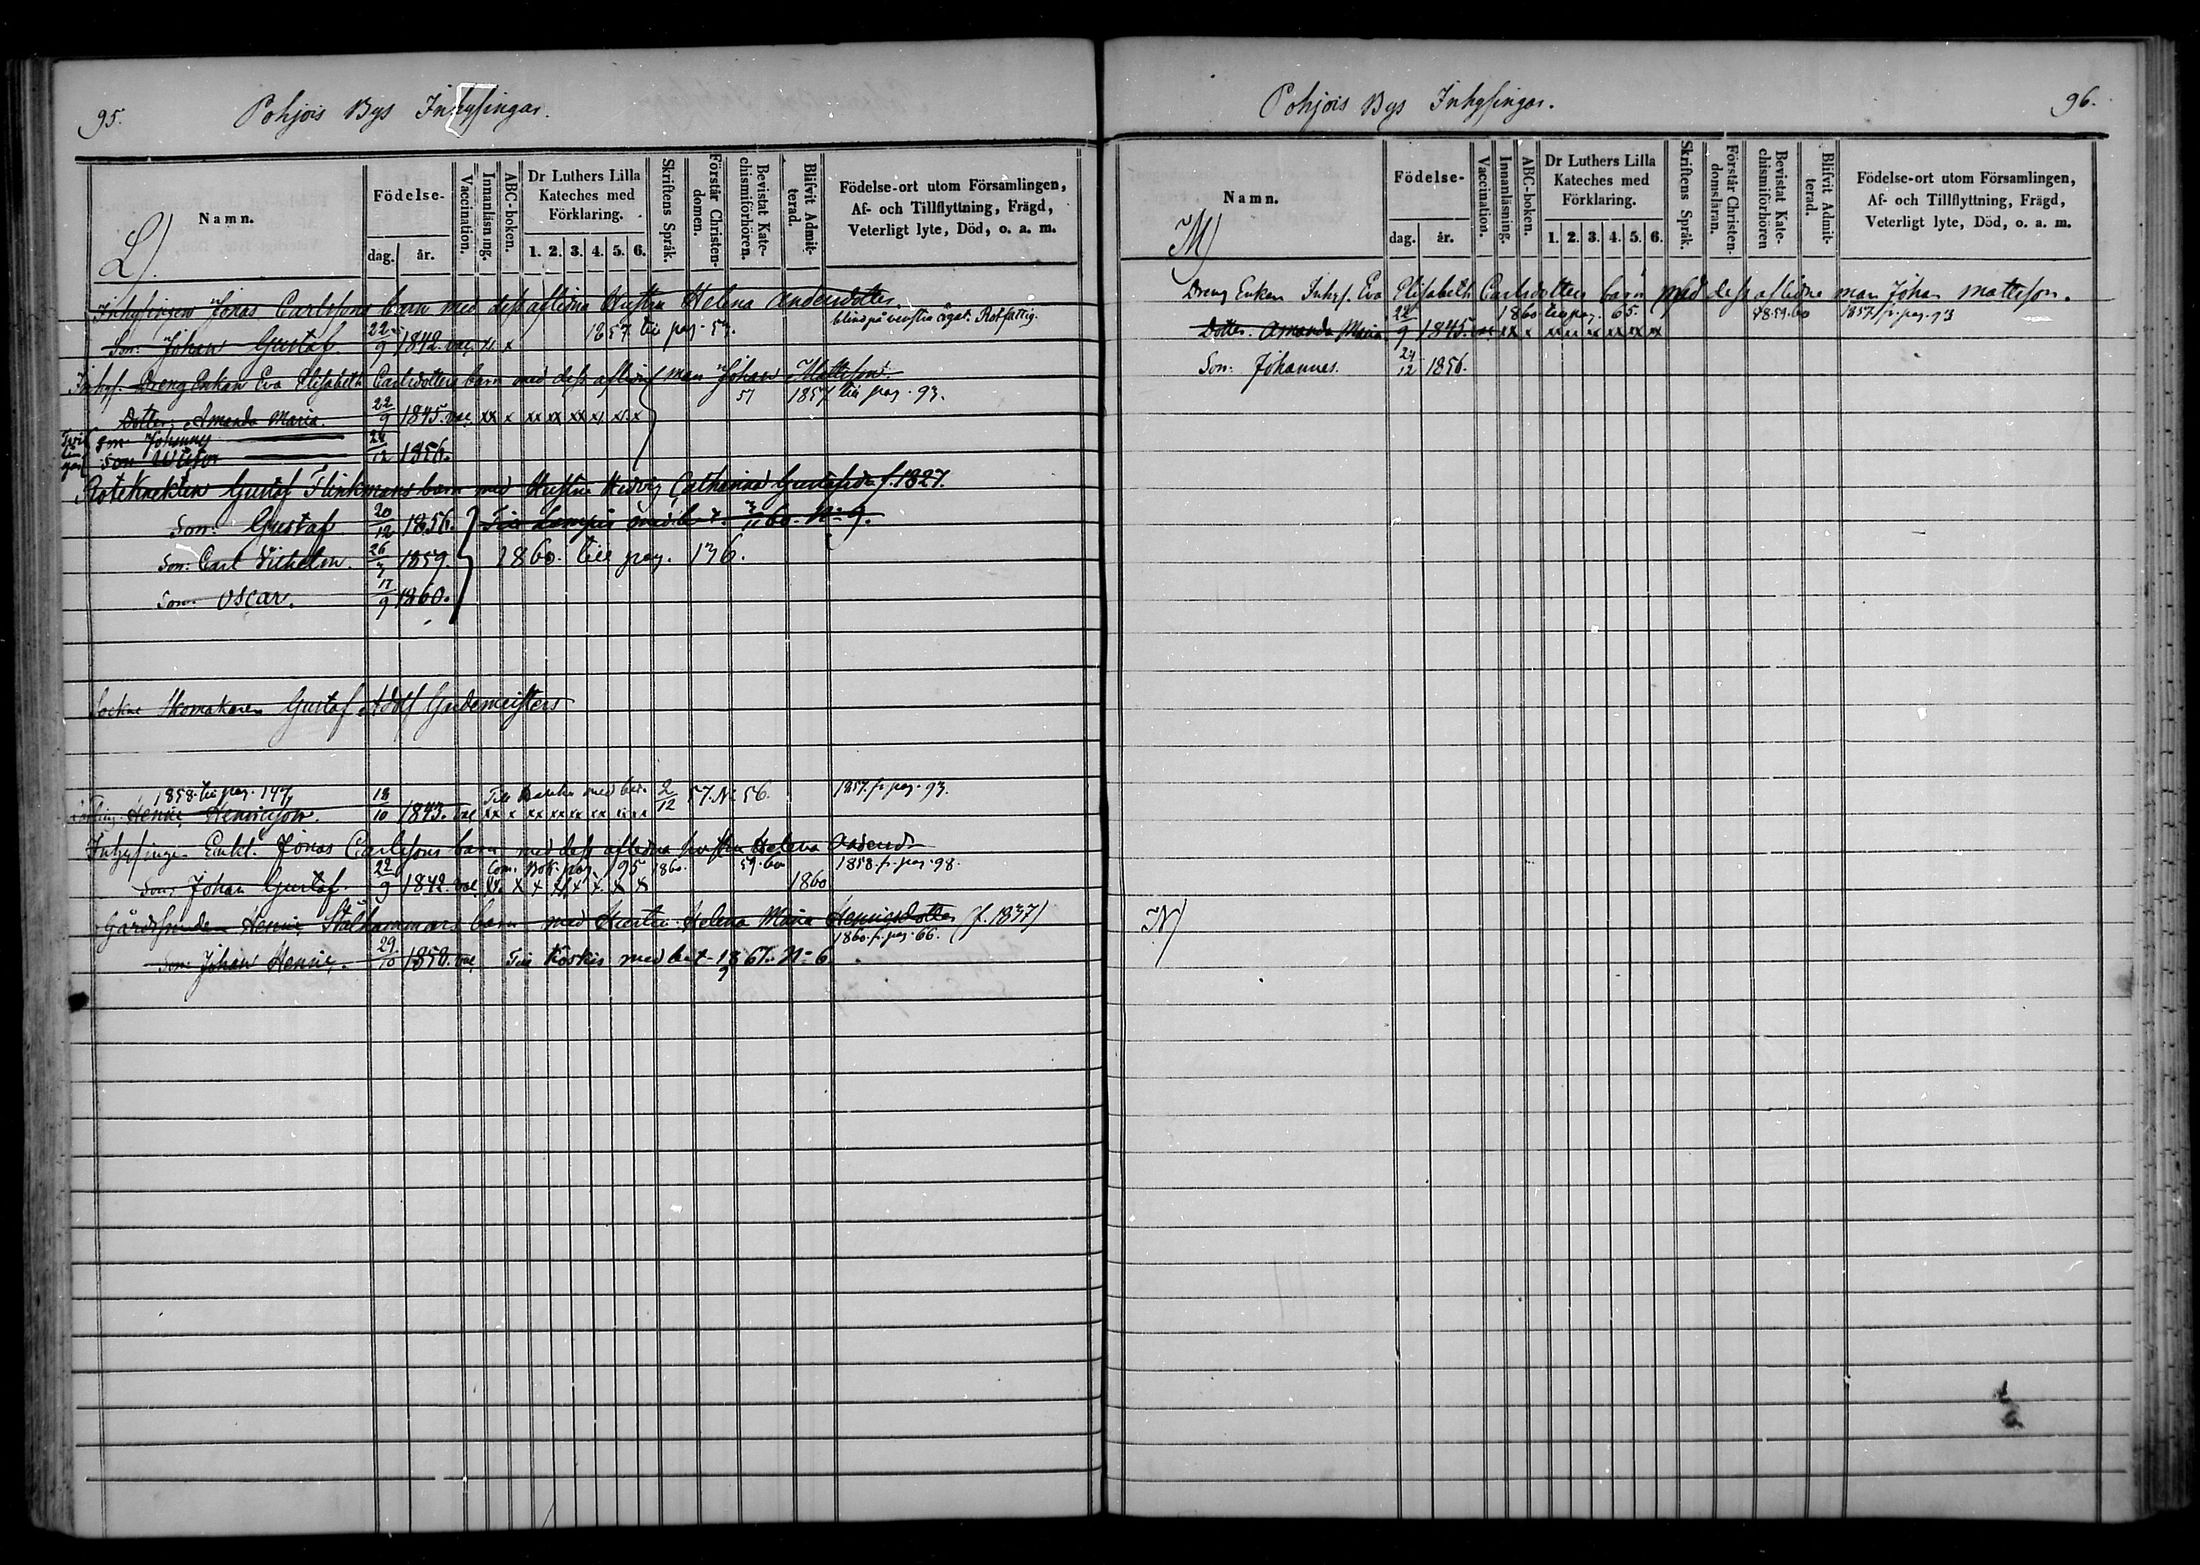 95.
Pohjois Bys Inhysingar.
Namn.
Födelse-
dag.
år.
Vaccination.
Innanläsning.
ABC-boken.
Dr Luthers Lilla
Kateches med
Förklaring.
1. 2. 3. 4. 5. 6.
Skriftens Språk.
Förstår Christen-
domen.
Bevistat Kate-
chismiförhören.
Blifvit Admit-
terad.
Födelse-ort utom Församlingen,
Af- och Tillflyttning, Frägd,
Veterligt lyte, Död, o. a. m.
L)
Inhysingen Jonas Carlssons barn med dess aflidna Hustru Helena Andersdotter.
Son: Johan Gustaf. 22/9 1842. vac x x 1857. till pag. 53. blind på venstra ögat. Rotfattig.
Inhys. Dreng Enkan Eva Elisabeth Carlsdotters barn med dess aflidne man Johan Mattsson.
Dotter: Amanda Maria. 22/9 1845. vac xx x xx xx xx x x x 57 1857 till pag. 93.
Son Johannes
24/12 1856.
Roteknekten Gustaf Flinkmans barn med Hustru Hedvig Catharina Gustafsd. f. 1827.
Son: Gustaf 20/12 1856. Till Lampis med bet. 60. No 9.
Son: Carl Vilhelm. 26/3 1859. 1860. till pag. 136.
Son: Oscar. 17/9 1860.
Sockne Skomakaren Gustaf Adolf Gudemeisters
1858. till pag. 147, 18/10 Till med bet. 2/12 57. No 56. 1857. fr. pag. 93.
Henric Henricsson. 1843. vac xx x xx xx xx xx x x
Inhysinge Enkl. Jonas Carlssons barn med dess aflidna hustru Helena Andersd.
Com. Bok. pag. 195 1860. 59. 60 1858. fr. pag. 98.
Son: Johan Gustaf. 22/9 1842. vac xx x x xx x x x 1860
Gårdsfunden Henric Stålhammars barn med Hustru Helena Maria Henricsdotter (f. 1837)
1860. fr. pag. 66.
Son: Johan Henric. 29/10 1850. vac Till Koskis med bet. 1861. No 6.
Pohjois Bys Inhysingar.
96.
Namn.
Födelse-
dag.
år.
Vaccination.
Innanläsning.
ABC-boken.
Dr Luthers Lilla
Kateches med
Förklaring.
1. 2. 3. 4. 5. 6.
Skriftens Språk.
Förstår Christen-
domsläran.
Bevistat Kate-
chismiförhören
Blifvit Admit-
terad.
Födelse-ort utom Församlingen,
Af- och Tillflyttning, Frägd,
Veterligt lyte, Död, o. a. m.
M)
Dreng Enkan Inhys. Eva Elisabeth Carlsdotters barn med dess aflidne man Johan Mattsson.
1860 till pag. 65. 58. 59. 60 1857. fr. pag. 93
Dotter. Amanda Maria 22/9 1845. vac xx x xx x x x x x
Son: Johannes. 24/12 1856.
N)